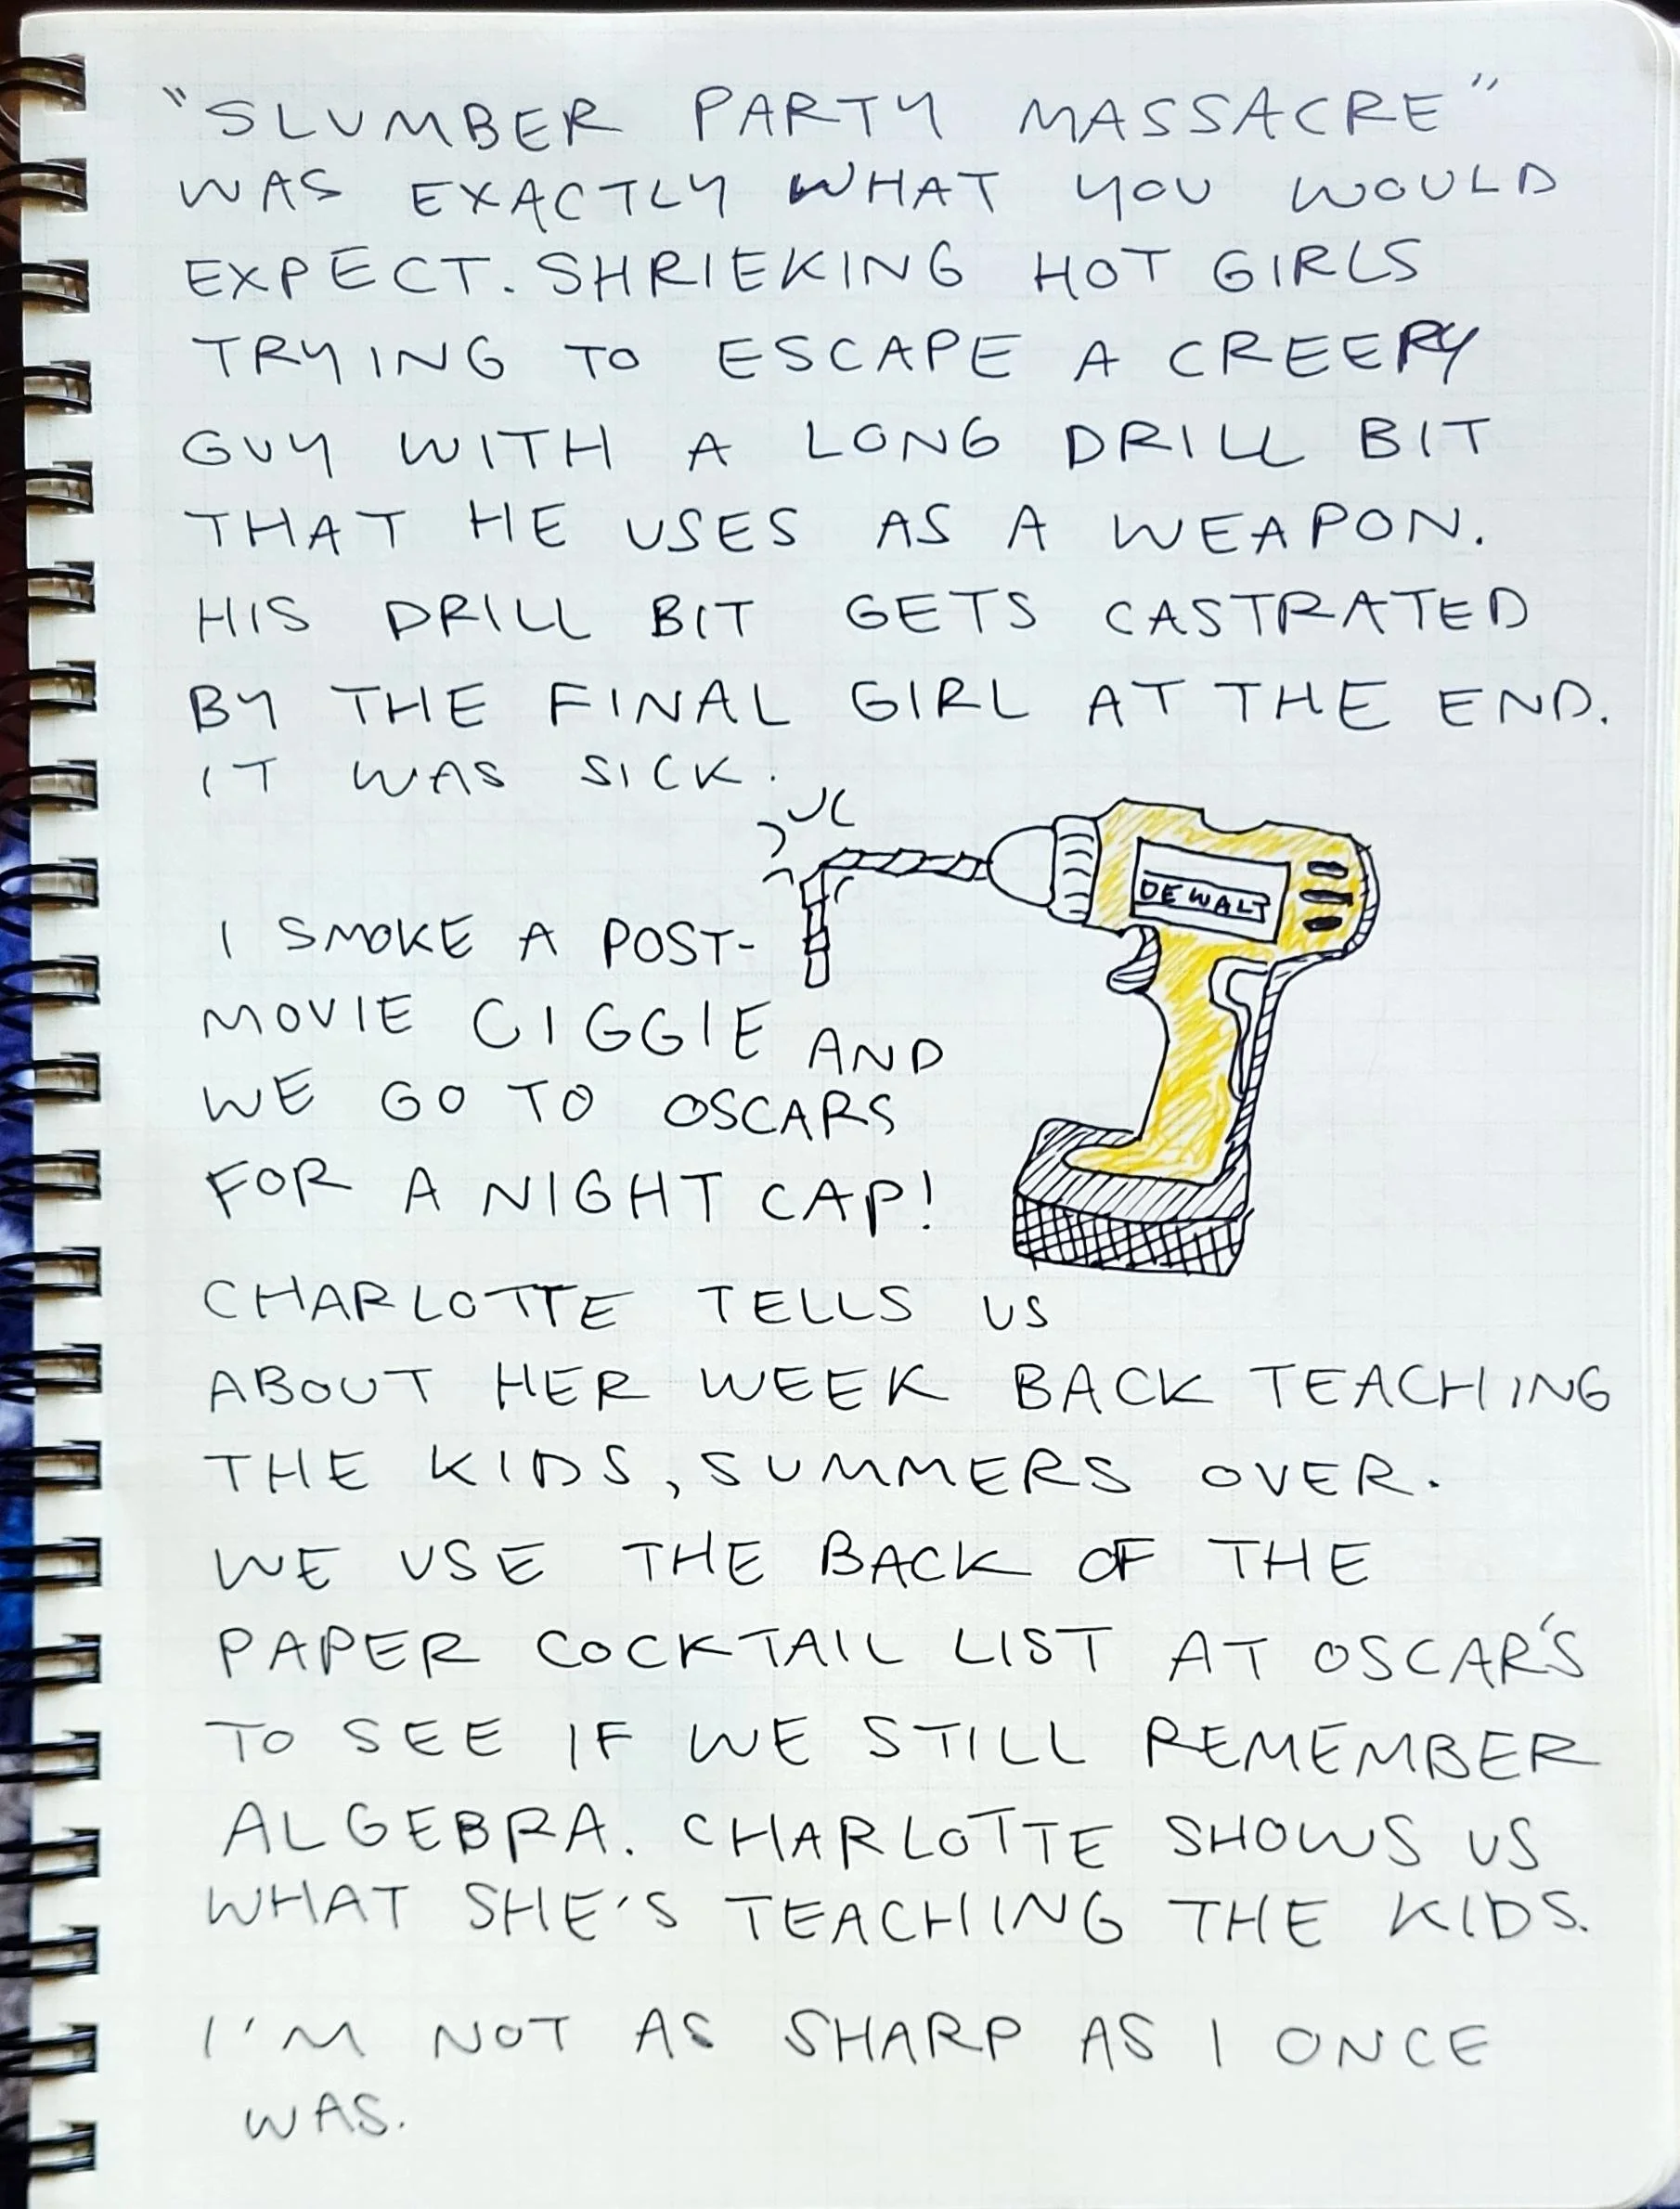 "SLUMBER PARTY MASSACRE"
WAS EXACTLY WHAT YOU WOULD
EXPECT. SHRIEKING HOT GIRLS
TRYING TO ESCAPE A CREEPY
GUY WITH A LONG DRILL BIT
THAT HE USES AS A WEAPON.
HIS DRILL BIT GETS CASTRATED
BY THE FINAL GIRL AT THE END.
IT WAS SICK.
DEWALT
I SMOKE A POST-
MOVIE CIGGIE AND
WE GO TO OSCARS
FOR A NIGHT CAP!
CHARLOTTE TELLS US
ABOUT HER WEEK BACK TEACHING
THE KIDS, SUMMERS OVER.
WE USE THE BACK OF THE
PAPER COCKTAIL LIST AT OSCAR'S
TO SEE IF WE STILL REMEMBER
ALGEBRA. CHARLOTTE SHOWS US
WHAT SHE'S TEACHING THE KIDS.
I'M NOT AS SHARP AS I ONCE
WAS.